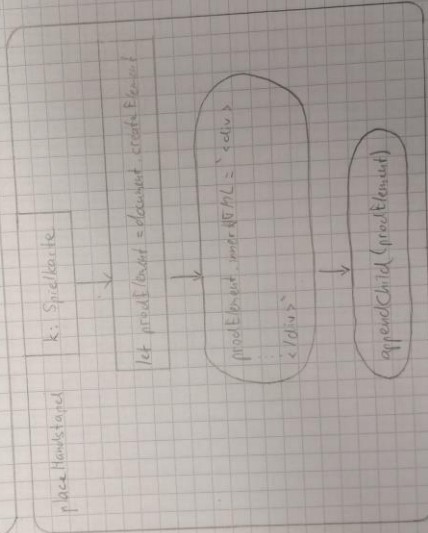 placeHandstapel
k: Spielkarte
let prodElement = document.createElement
prodElement.innerHTML = `<div>
⋮
</div>`
appendChild(prodElement)